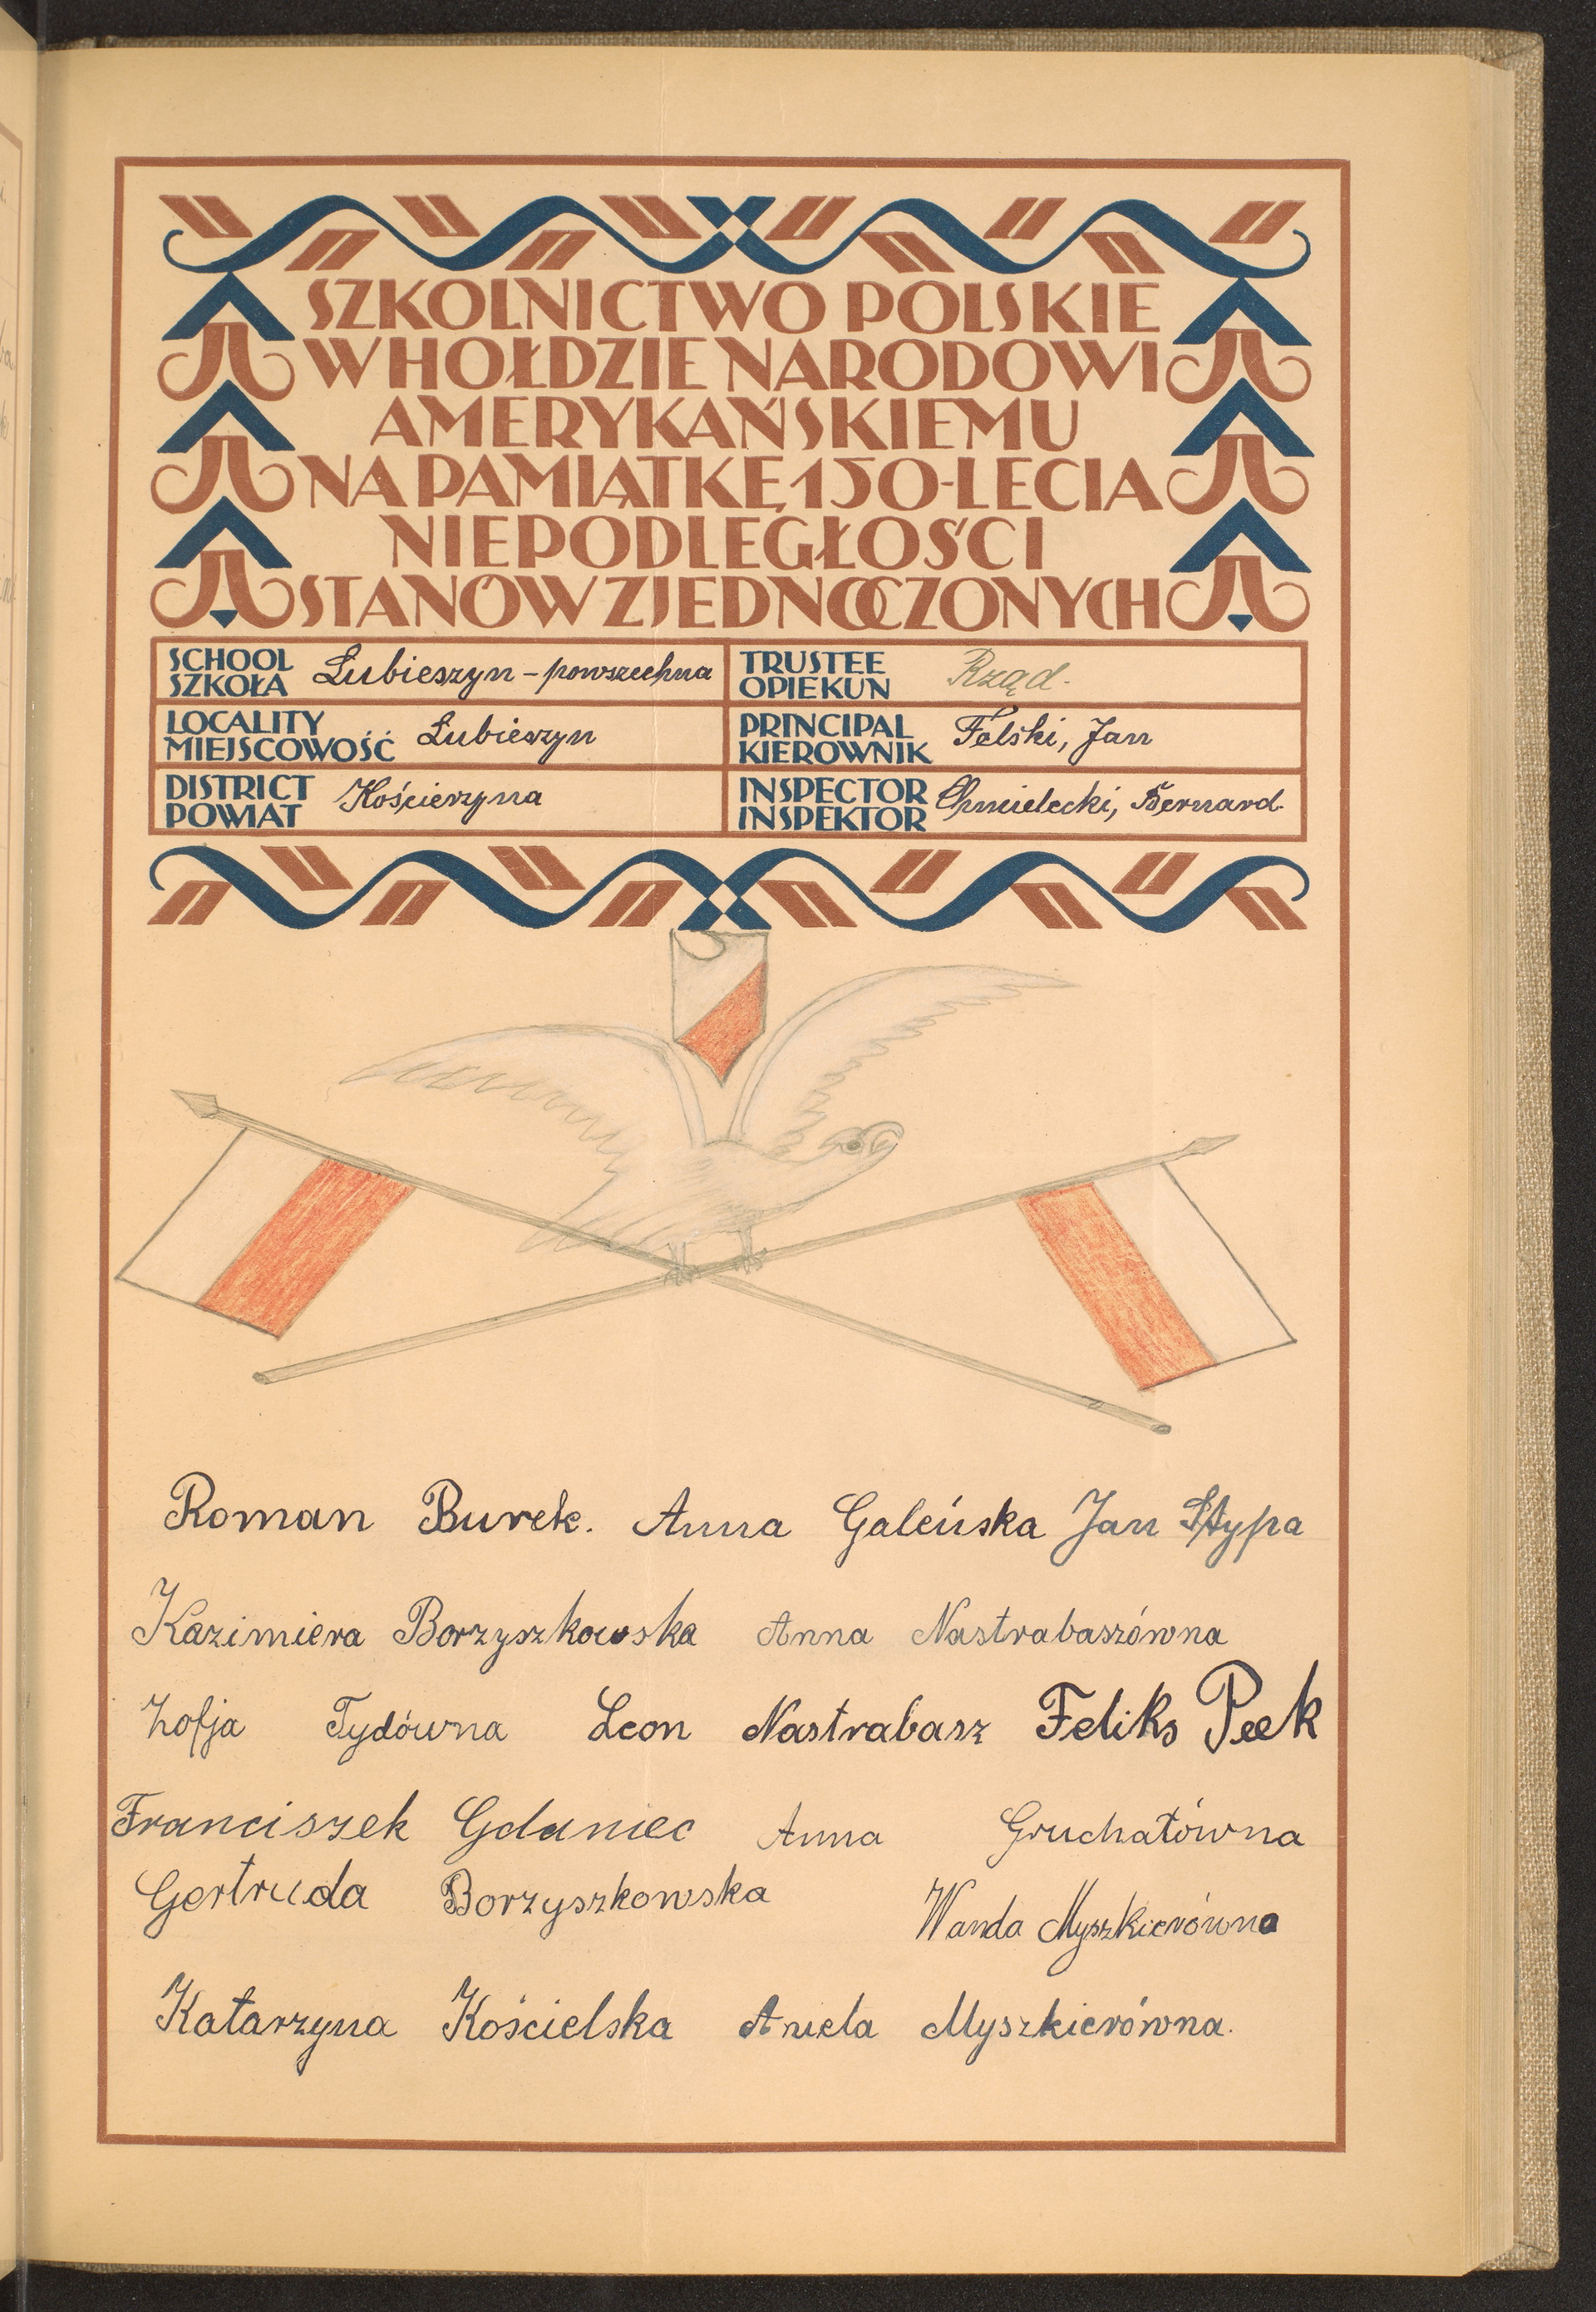 SZKOLNICTWO POLSKIE
W HOŁDZIE NARODOWI
AMERYKAŃSKIEMU
NA PAMIĄTKĘ 150-LECIA
NIEPODLEGŁOŚCI
STANÓW ZJEDNOCZONYCH
SCHOOL
SZKOŁA
Lubieszyn - powszechna
TRUSTEE
OPIEKUN
Rząd.
LOCALITY
MIEJSCOWOŚĆ
Lubieszyn
PRINCIPAL
KIEROWNIK
Felski, Jan
DISTRICT
POWIAT
Kościerzyna
INSPECTOR
INSPEKTOR
Chmielecki, Bernard.
Roman Burek. Anna Galeńska Jan Stypa
Kazimiera Borzyszkowska Anna Nastrabaszówna
Zofja Tydówna Leon Nastrabasz Feliks Pek
Franciszek Gdaniec Anna Gruchatówna
Gertruda Borzyszkowska Wanda Myszkierówna
Katarzyna Kościelska Aniela Myszkierówna.